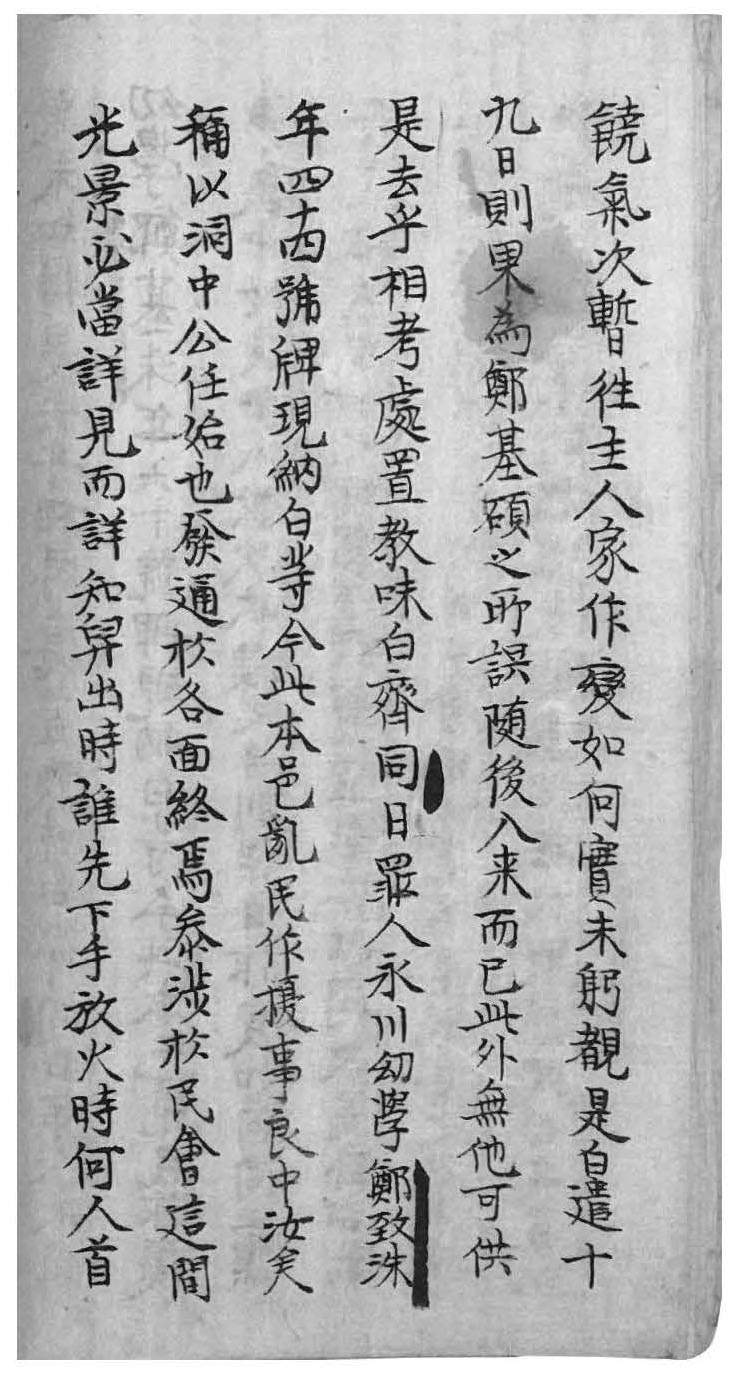 饒氣次暫徃主人家作變如何實未躬覩是白遣十
九日則果為鄭基碩之所誤随後入来而已此外無他可供
是去乎相考處置教味白齊同日罪人永川幼學鄭致洙
年四十四號牌現納白等今此本邑亂民作擾事良中汝矣
稱以洞中公任始也發通於各面終焉叅涉於民會這間
光景必當詳見而詳知舁出時誰先下手放火時何人首